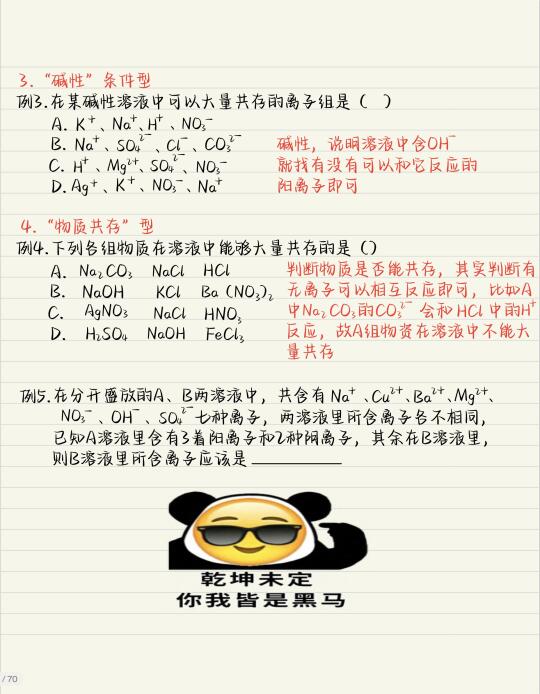 3. “碱性”条件型
例3.在某碱性溶液中可以大量共存的离子组是（ ）
A. K⁺、Na⁺、H⁺、NO₃⁻
B. Na⁺、SO₄²⁻、Cl⁻、CO₃²⁻
C. H⁺、Mg²⁺、SO₄²⁻、NO₃⁻
D. Ag⁺、K⁺、NO₃⁻、Na⁺
碱性，说明溶液中含OH⁻
就找有没有可以和它反应的
阳离子即可
4. “物质共存”型
例4.下列各组物质在溶液中能够大量共存的是（）
A. Na₂CO₃ NaCl HCl
B. NaOH KCl Ba(NO₃)₂
C. AgNO₃ NaCl HNO₃
D. H₂SO₄ NaOH FeCl₃
判断物质是否能共存，其实判断有
无离子可以相互反应即可，比如A
中Na₂CO₃的CO₃²⁻会和HCl中的H⁺
反应，故A组物资在溶液中不能大
量共存
例5.在分开盛放的A、B两溶液中，共含有Na⁺、Cu²⁺、Ba²⁺、Mg²⁺、
NO₃⁻、OH⁻、SO₄²⁻七种离子，两溶液里所含离子各不相同，
已知A溶液里含有3着阳离子和2种阴离子，其余在B溶液里，
则B溶液里所含离子应该是__________
乾坤未定
你我皆是黑马
/70